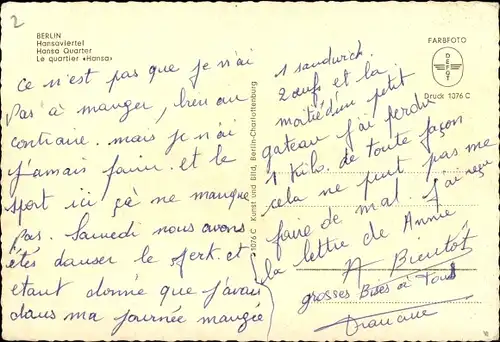 2
BERLIN
Hansaviertel
Hansa Quarter
Le quartier «Hansa»
ce n'est pas que je n'ai
pas à manger, bien au
contraire. mais je n'ai
jamais faim. et le
sport ici ça ne manque
pas. Samedi nous avons
étés danser le
etant donné que j'avais
dans ma journée mangée
1076 C Kunst und Bild, Berlin-Charlottenburg
FARBFOTO
DEFOT
Druck 1076 C
1 sandwich.
2 œufs et la
moitié d'un petit
gateau j'ai perdu
1 Kilo. de toute façon
cela ne peut pas me
faire de mal. j'ai reçu
la lettre de Annie
A Bientôt
grosses Bises à Tous